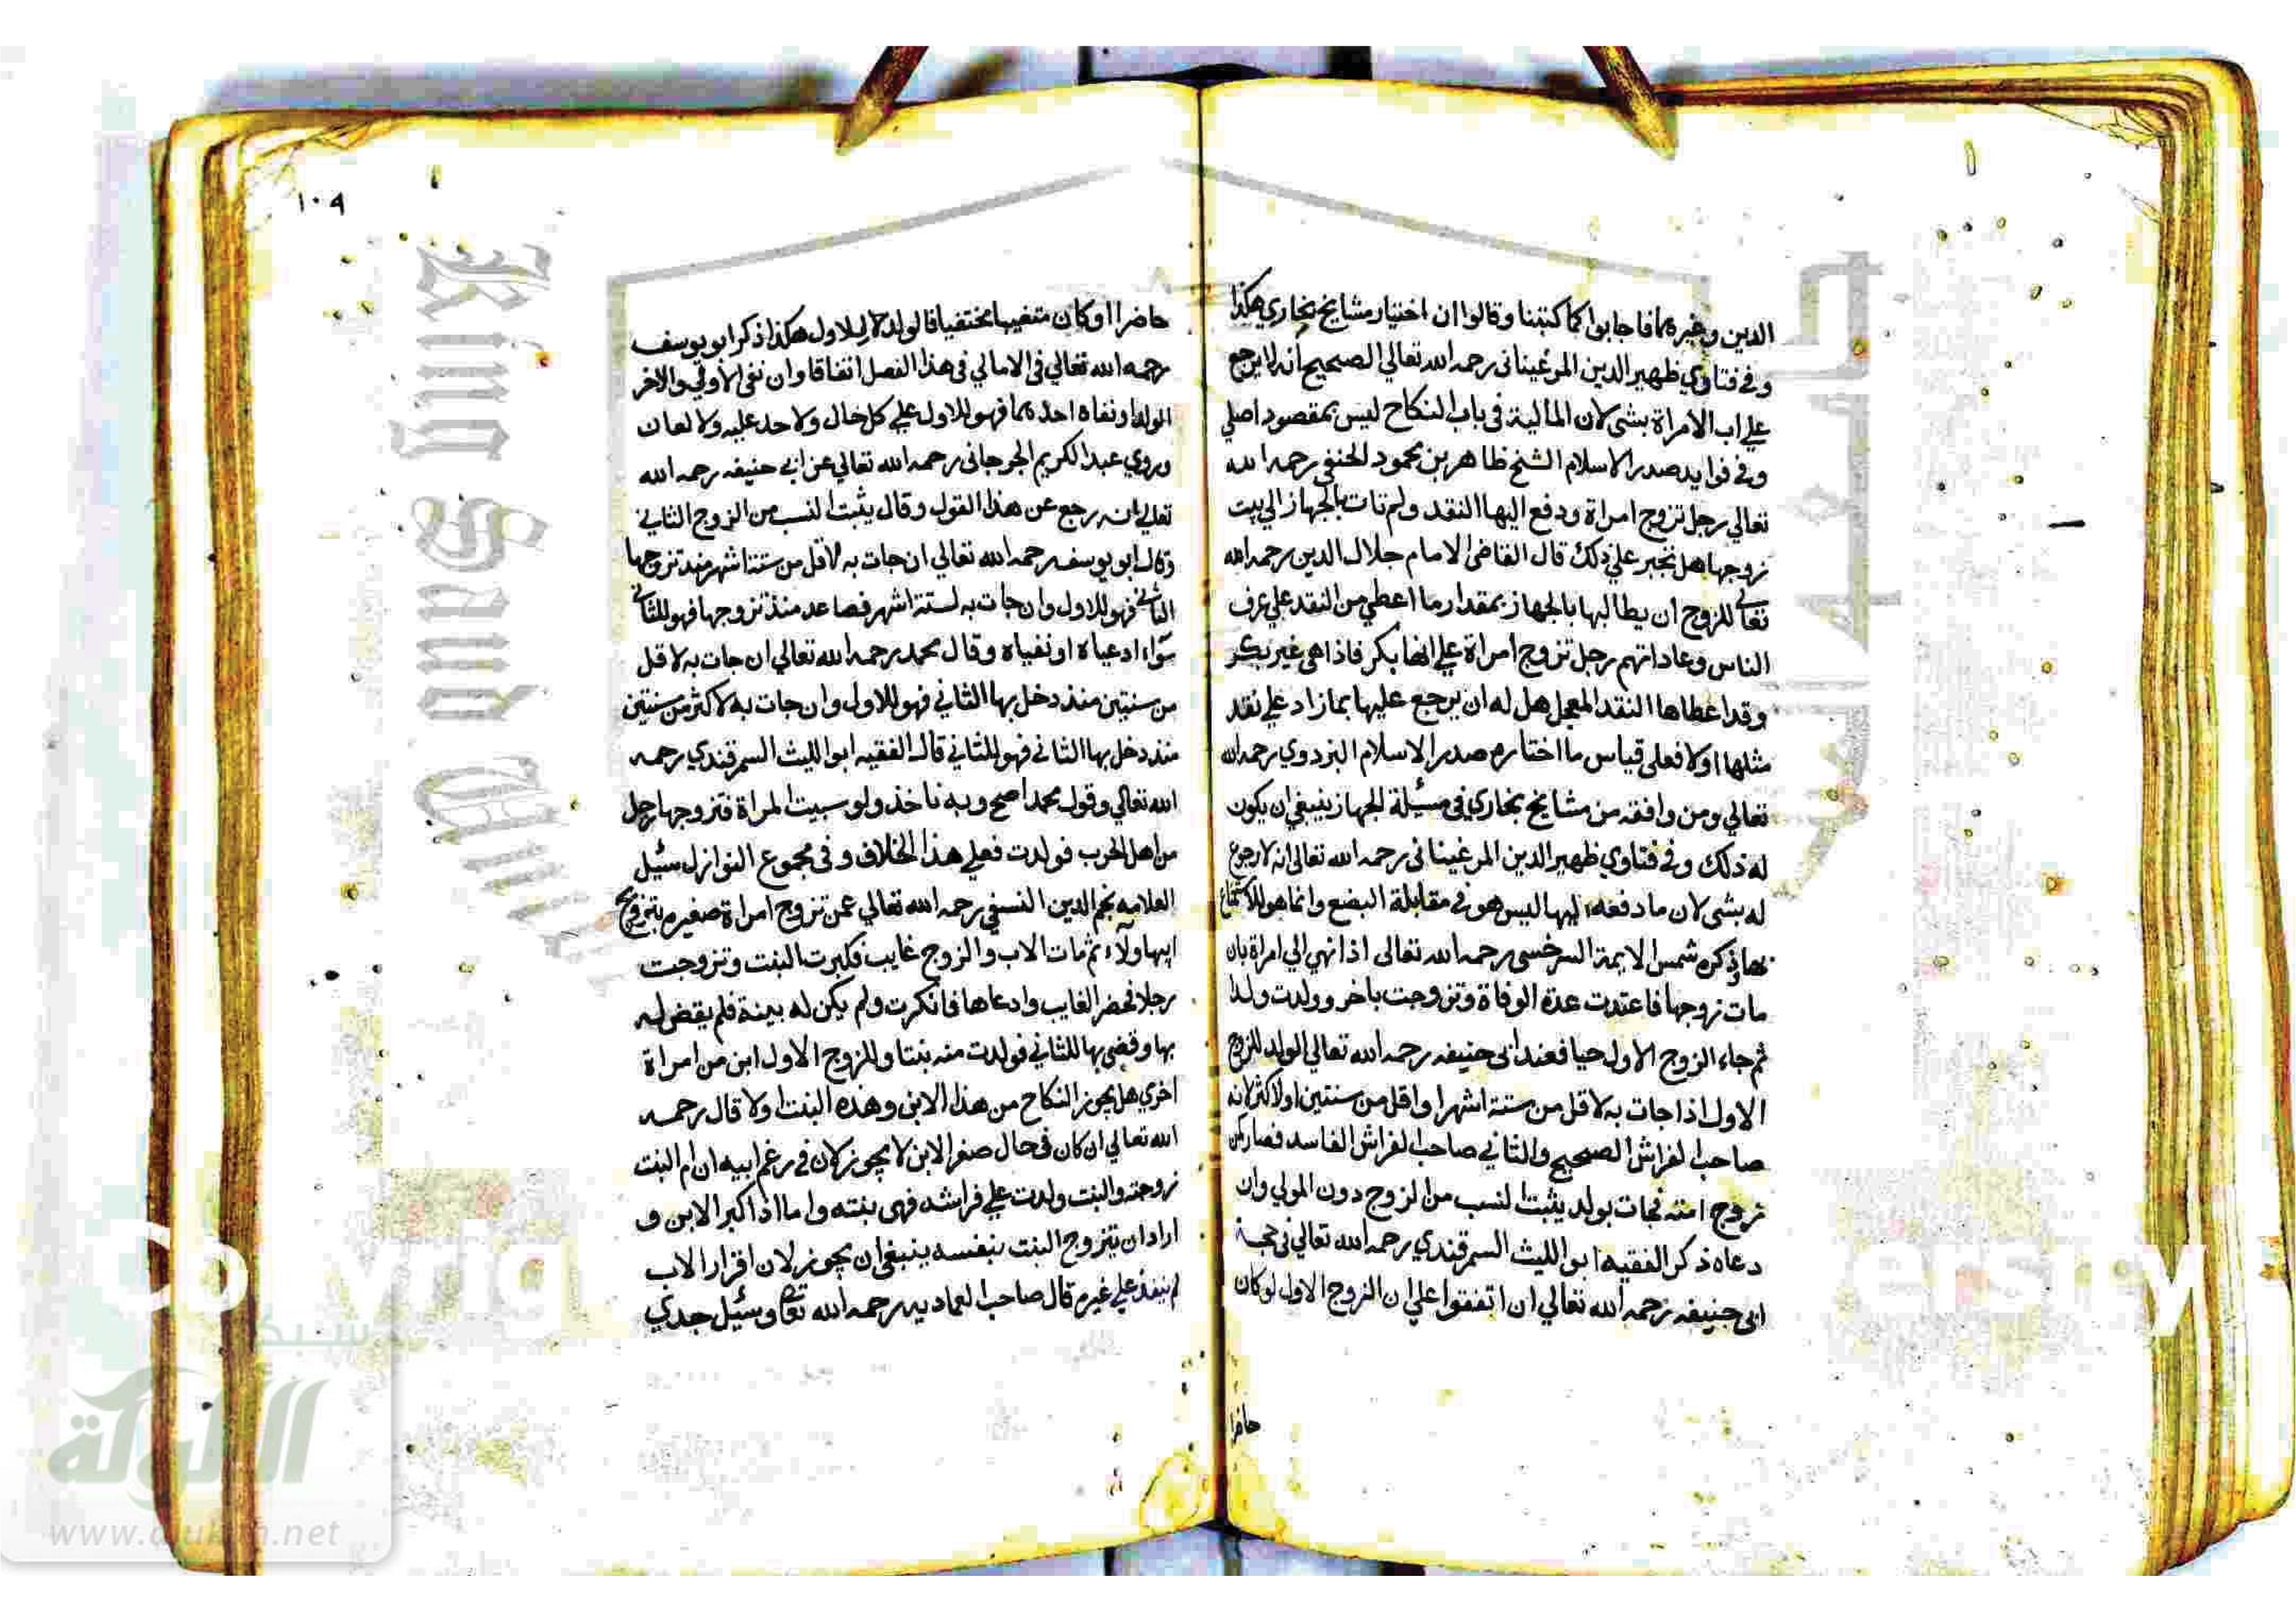 الدين وغيرهما فاجابوا كما كتبنا وقالوا ان اختيار مشايخ بخاري هكذا
وفي فتاوي ظهير الدين المرغيناني رحمه الله تعالي الصحيح أنه لا يرجع
علي اب الامراة بشي لان المالية في باب النكاح ليس بمقصود اصلي
وفي فوايد صدر الاسلام الشيخ ظاهر بن محمود الحنفي رحمه الله
تعالي رجل تزوج امراة ودفع اليها النقد ولم تات بالجهاز الي بيت
زوجها هل تجبر علي ذلك قال القاضي الامام جلال الدين رحمه الله
تعالي للزوج ان يطالبها بالجهاز بمقدار ما اعطي من النقد علي عرف
الناس وعاداتهم رجل تزوج امراة علي انها بكر فاذا هي غير بكر
وقد اعطاها النقد المعجل هل له ان يرجع عليها بما زاد علي نقد
مثلها اولا فعلي قياس ما اختاره صدر الاسلام البزدوي رحمه الله
تعالي ومن وافقه من مشايخ بخاري في مسئلة الجهاز ينبغي ان يكون
له ذلك وفي فتاوي ظهير الدين المرغيناني رحمه الله تعالي انه لا رجوع
له بشي لان ما دفعه اليها ليس هو في مقابلة البضع وانما هو للاستمتاع
بها وذكره شمس الايمة السرخسي رحمه الله تعالي اذا نهي الي امراة بان
مات زوجها فاعتدت عدة الوفاة وتزوجت باخر وولدت ولدا
ثم جاء الزوج الاول حيا فعند ابي حنيفه رحمه الله تعالي الولد للزوج
الاول اذا جات به لاقل من ستة اشهر او اقل من سنتين او لاكثر لانه
صاحب الفراش الصحيح والثاني صاحب الفراش الفاسد فصار كمن
تزوج امته فجات بولد يثبت النسب من الزوج دون المولي وان
دعاه ذكر الفقيه ابو الليث السمرقندي رحمه الله تعالي في حجة
ابي حنيفه رحمه الله تعالي ان اتفقوا علي ان الزوج الاول لو كان
حاضرا
١٠٩
حاضرا او كان متغيبا مختفيا فالولد للاول هكذا ذكر ابو يوسف
رحمه الله تعالي في الامالي في هذا الفصل اتفاقا وان نفي الاول والاخر
الولد او نفاه احدهما فهو للاول علي كل حال ولا حد عليه ولا لعان
وروي عبد الكريم الجرجاني رحمه الله تعالي عن ابي حنيفه رحمه الله
تعالي انه رجع عن هذا القول وقال يثبت النسب من الزوج الثاني
وقال ابو يوسف رحمه الله تعالي ان جات به لاقل من ستة اشهر منذ تزوجها
الثاني فهو للاول وان جات به لستة اشهر فصاعد منذ تزوجها فهو للثاني
سواء ادعياه او نفياه وقال محمد رحمه الله تعالي ان جات به لاقل
من سنتين منذ دخل بها الثاني فهو للاول وان جات به لاكثر من سنتين
منذ دخل بها الثاني فهو للثاني قال الفقيه ابو الليث السمرقندي رحمه
الله تعالي وقول محمد اصح وبه ناخذ ولو سبيت المراة فتزوجها رجل
من اهل الحرب فولدت فعلي هذا الخلاف وفي مجموع النوازل سئيل
العلامه نجم الدين النسفي رحمه الله تعالي عمن تزوج امراة صغيره بتزويج
ابيها ولاء ثم مات الاب والزوج غايب فكبرت البنت وتزوجت
رجلا فحضر الغايب وادعاها فانكرت ولم يكن له بينة فلم يقض له
بها وقضي بها للثاني فولدت منه بنتا وللزوج الاول ابن من امراة
اخري هل يجوز النكاح من هذا الابن وهذه البنت اولا قال رحمه
الله تعالي ان كان في حال صغر الابن لا يجوز لان في زعم ابيه ان ام البنت
زوجته والبنت ولدت علي فراشه فهي بنته واما اذا كبر الابن و
اراد ان يتزوج البنت بنفسه ينبغي ان يجوز لان اقرار الاب
لم ينفذ علي غيره قال صاحب العماديه رحمه الله تعالي وسئيل جدي
King Saud
شبكة
الألوكة
www.alukah.net